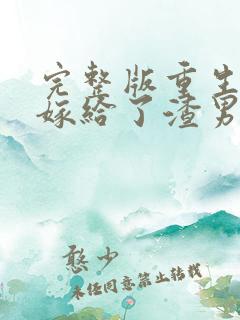 完整版重生
嫁给了渣男
憨少
未经同意禁止转载